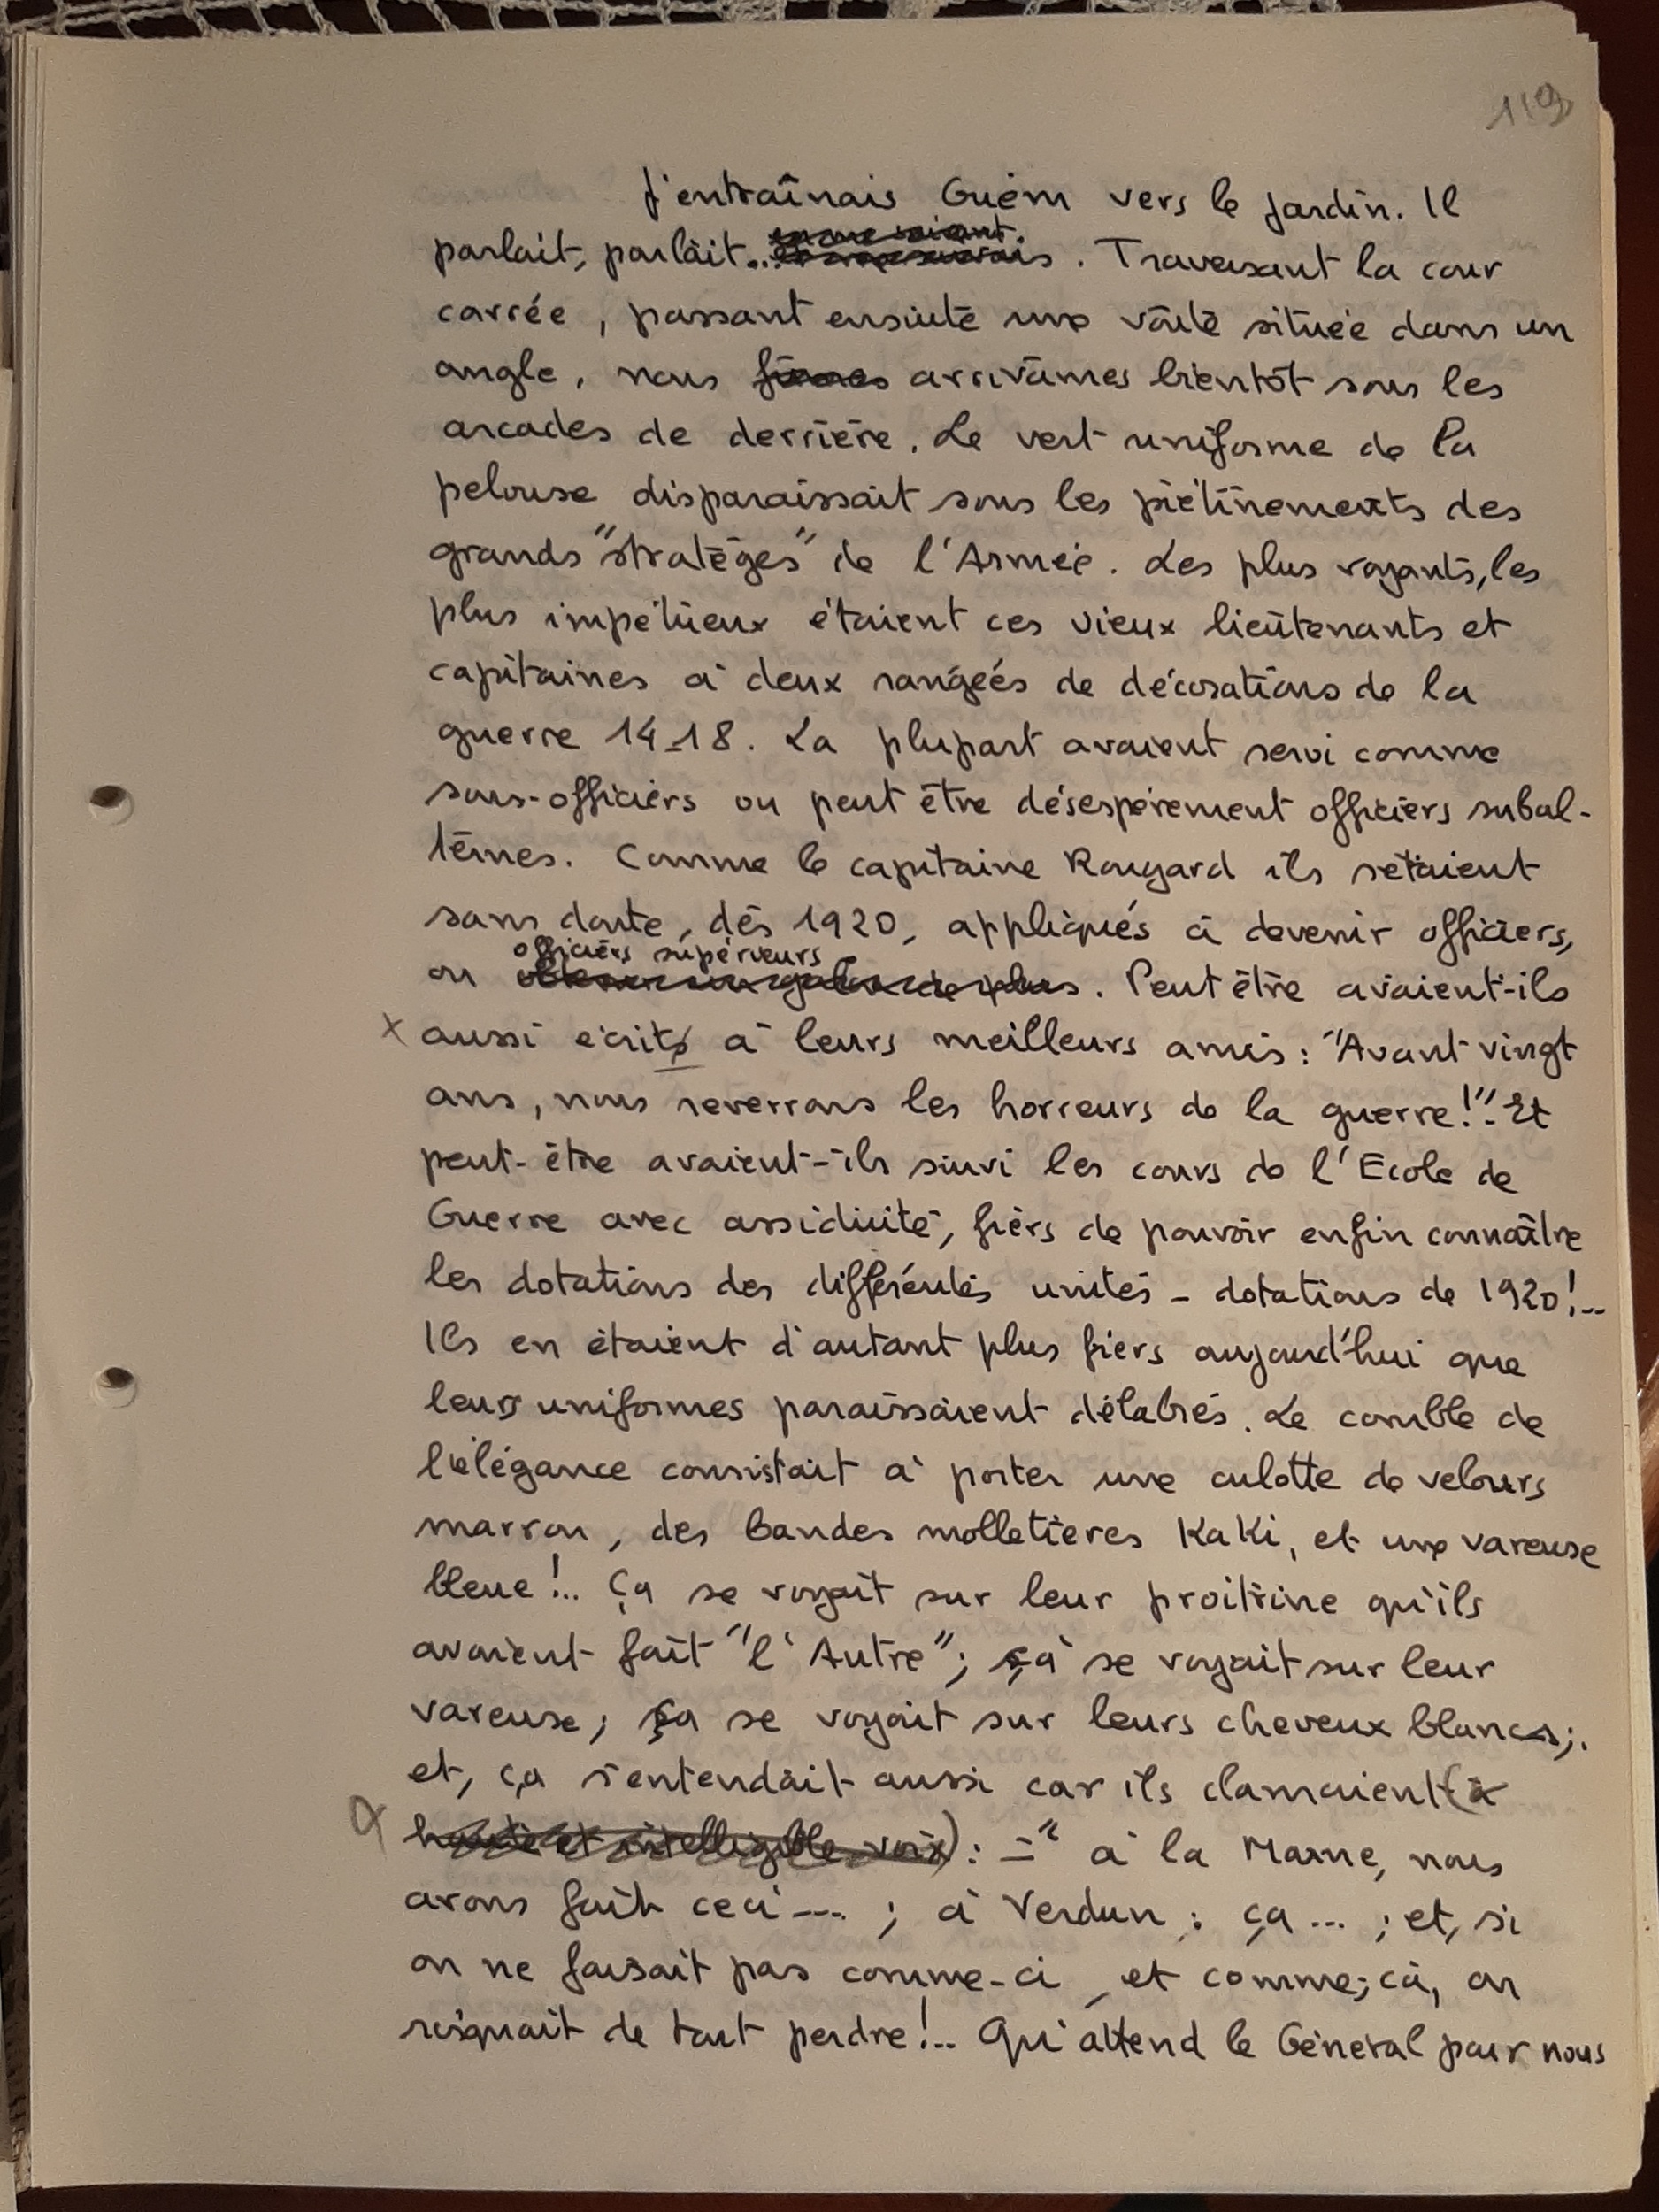 119
J'entraînais Guém vers le jardin. Il
parlait, parlait... . Traversant la cour
carrée, passant ensuite une voûte située dans un
angle, nous arrivâmes bientôt sous les
arcades de derrière. Le vert uniforme de la
pelouse disparaissait sous les piétinements des
grands "stratèges" de l'Armée. Les plus voyants, les
plus impétueux étaient ces vieux lieutenants et
capitaines à deux rangées de décorations de la
guerre 14-18. La plupart avaient servi comme
sous-officiers ou peut être désespérement officiers subal-
ternes. Comme le capitaine Rougard ils s'étaient
sans doute, dès 1920, appliqués à devenir officiers,
officiers supérieurs
ou . Peut être avaient-ils
x aussi écrit à leurs meilleurs amis : "Avant vingt
ans, nous reverrons les horreurs de la guerre!". Et
peut-être avaient-ils suivi les cours de l'Ecole de
Guerre avec assiduité, fiers de pouvoir enfin connaître
les dotations des différentes unités - dotations de 1920!...
Ils en étaient d'autant plus fiers aujourd'hui que
leurs uniformes paraissaient délabrés. Le comble de
l'élégance consistait à porter une culotte de velours
marron, des bandes molletières KaKi, et une vareuse
bleue!.. Ça se voyait sur leur proitrine qu'ils
avaient fait "l'Autre"; ça se voyait sur leur
vareuse; ça se voyait sur leurs cheveux blancs;
et, ça s'entendait aussi car ils clamaient (à
haute et intelligible voix) : - " à la Marne, nous
avons fait ceci ... ; à Verdun : ça ... ; et, si
on ne faisait pas comme-ci, et comme-çà, on
risquait de tout perdre!.. Qu'attend le Général pour nous